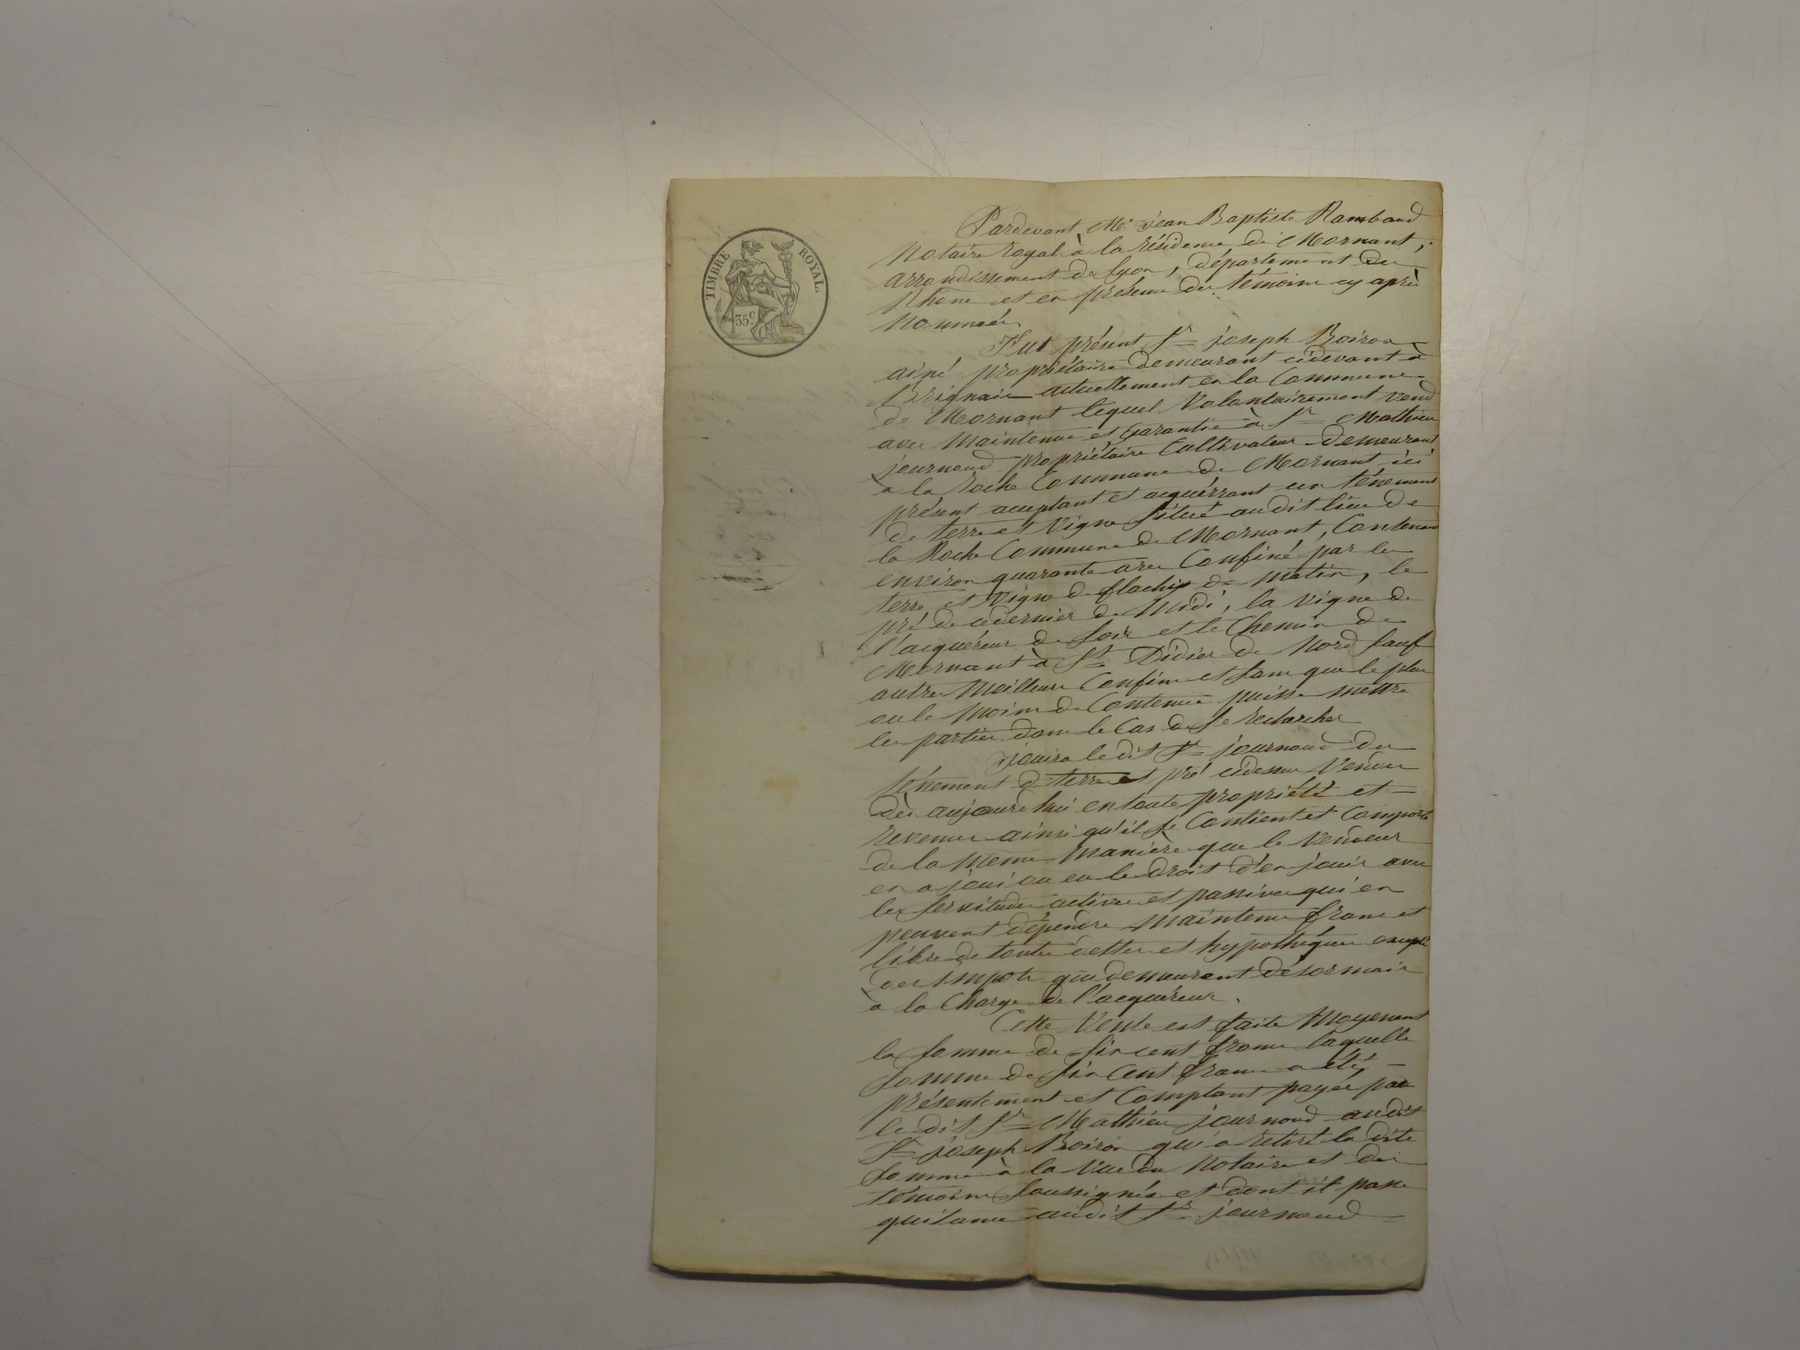 TIMBRE ROYAL.
35 c.
Pardevant Me jean Baptiste Rambaud
Notaire royal à la résidence de Mornant,
arrondissement de Lyon, département du
Rhone et en présence des témoins cy après
nommés.
Fut présent Sr joseph Boiron
ainé propriétaire demeurant cidevant à
Brignais actuellement en la Commune
de Mornant lequel Volontairement vend
avec Maintenue et Garantie à Sr Mathieu
journoud propriétaire Cultivateur demeurant
à la Roche Commune de Mornant ici
présent acceptant et acquérrant un ténement
de terre et Vigne Situé audit lieu de
la Roche Commune de Mornant, Contenant
environ quarante ares Confiné par les
terre et Vigne de flachy de matin, le
pré de ce dernier de Midi, la Vigne de
l'acquéreur de Soir et le Chemin de
Mornant à St Didier de Nord Sauf
autres Meilleurs Confins et Sans que le plus
ou le Moins de Contenue puisse mettre
les parties dans le Cas de Se rechercher
jouira le dit Sr journoud du
ténement de terre et pré cidessus Vendu
dès aujourd'hui en toute propriété et
revenus ainsi qu'il Se Contient et Comporte
de la même Manière que le Vendeur
en a joui ou eu le droit d'en jouir avec
les Servitudes actives et passives qui en
peuvent dépendre Maintenu franc et
libre de toutes dettes et hypothèques excepté
des Impots qui demeurent désormais
à la Charge de l'acquéreur.
Cette Vente est faite Moyenant
la Somme de Six cent francs laquelle
Somme de Six Cent francs a été
présentement et Comptant payée par
le dit Sr Mathieu journoud audit
Sr joseph Boiron qui a retiré la dite
Somme à la Vue du Notaire et des
témoins Soussignés et dont il passe
quitance audit Sr journoud